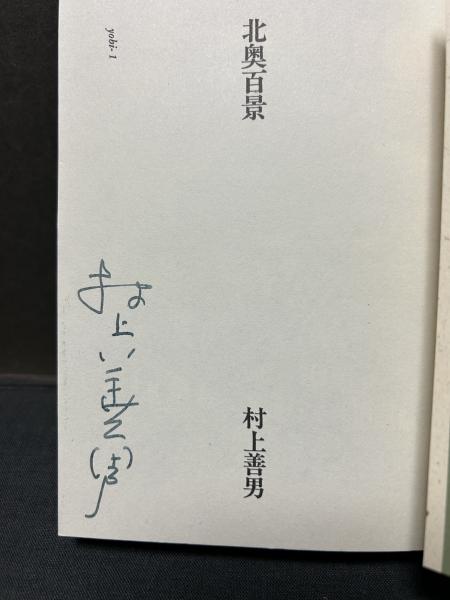 北奥百景
村上善男
yobi-1
村上善男